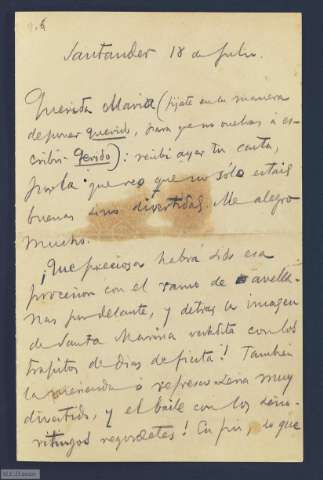 Santander 18 de Julio.
Querida María (fíjate en la manera
de poner querida, para que no vuelvas á es-
cribir Qerido): recibí ayer tu carta,
por la que veo que no sólo estáis
buenas sino divertidas. Me alegro
mucho.
¡Que preciosa habrá sido esa
procesion con el ramo de avella-
nas por delante, y detras la imagen
de Santa Marina vestidita con los
trapitos de dias de fiesta! Tambien
la merienda ó refresco seria muy
divertido, y el baile con los
regordetes! En fin, lo que